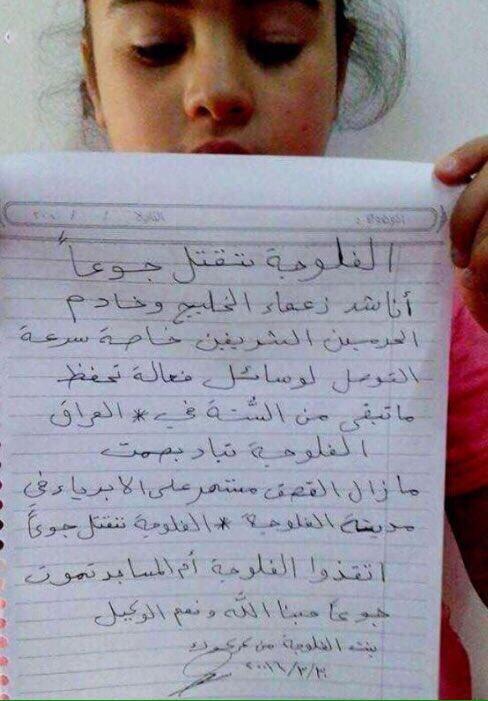 الفلوجة تتقتل جوعاً
أناشد زعماء الخليج وخادم
الحرمين الشريفين خاصة سرعة
التوصل لوسائل فعالة تحفظ
ماتبقى من السُّنة في * العراق
الفلوجة تباد بصمت
مازال القصف مستمر على الابرياء في
مدينة الفلوجة * الفلوجة تتقتل جوعاً
انقذوا الفلوجة أم المساجد تموت
جوعاً حسبنا الله ونعم الوكيل
بنت الفلوجة من كركوك